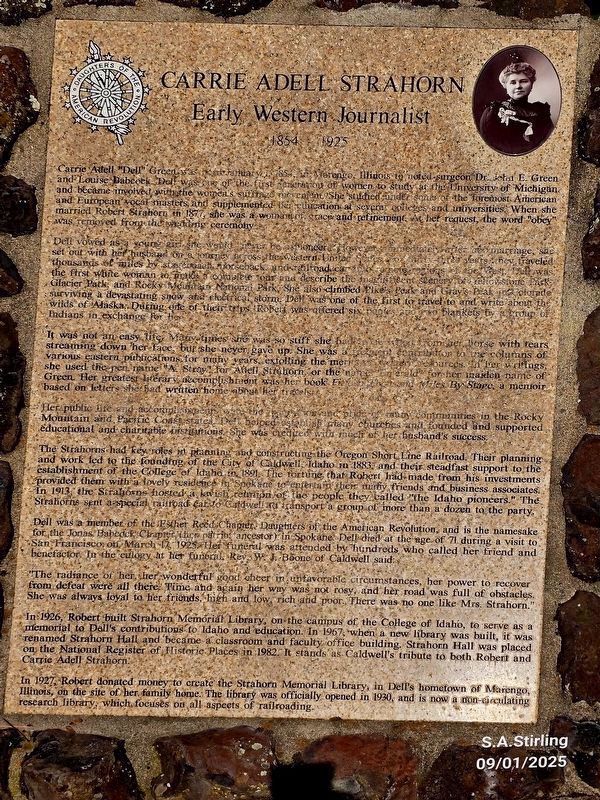 DAUGHTERS OF THE
AMERICAN REVOLUTION
CARRIE ADELL STRAHORN
Early Western Journalist
1854 1925
Carrie Adell "Dell" Green was born January 1, Marengo, Illinois to noted surgeon Dr. John E. Green
and Louise Babcock. Dell was one of the first generation of women to study at the University of Michigan
and became involved with the women's suffrage movement. She studied under some of the foremost American
and European vocal masters and supplemented her education at several colleges and universities. When she
married Robert Strahorn in 1877, she was a woman of grace and refinement. At her request, the word "obey"
was removed from the wedding ceremony.
Dell vowed as a young girl she would never be a pioneer. However, immediately after her marriage, she
set out with her husband on a journey across the Western United years, they traveled
thousands of miles by stagecoach, horseback, and railroad
the first white woman to make a complete tour and describe the Yellowstone Park,
Glacier Park, and Rocky Mountain National Park. She also climbed Pikes Peak and Gray's Peak in Colorado
surviving a devastating snow and electrical storm. Dell was one of the first to travel to and write about the
wilds of Alaska. During one of their trips Robert was offered six ponies blankets by a group of
Indians in exchange for her.
It was not an easy life. Many times she was so stiff she her horse with tears
streaming down her face, but she never gave up. She was a frequent contributor to the columns of
various eastern publications for many years, extolling the In her writings,
she used the pen name "A. Stray" for Adell Strahorn, or the her maiden name of
Green. Her greatest literary accomplishment was her book Fifteen Thousand Miles By Stage, a memoir
based on letters she had written home about her travels.
Her public life and accomplishments many communities in the Rocky
Mountain and Pacific Coast states. Dell helped establish many churches and founded and supported
educational and charitable institutions. She was credited with much of her husband's success.
The Strahorns had key roles in planning and constructing the Oregon Short Line Railroad. Their planning
and work led to the founding of the City of Caldwell, Idaho in 1883, and their steadfast support to the
establishment of the College of Idaho in 1891. The fortune that Robert had made from his investments
provided them with a lovely residence in Spokane to entertain their many friends and business associates.
In 1913, the Strahorns hosted a lavish reunion of the people they called "the Idaho pioneers." The
Strahorns sent a special railroad car to Caldwell to transport a group of more than a dozen to the party.
Dell was a member of the Esther Reed Chapter, Daughters of the American Revolution, and is the namesake
for the Jonas Babcock Chapter (her patriot ancestor) in Spokane. Dell died at the age of 71 during a visit to
San Francisco on March 17, 1925. Her funeral was attended by hundreds who called her friend and
benefactor. In the eulogy at her funeral, Rev. W. J. Boone of Caldwell said:
"The radiance of her, her wonderful good cheer in unfavorable circumstances, her power to recover
from defeat were all there. Time and again her way was not rosy, and her road was full of obstacles.
She was always loyal to her friends, high and low, rich and poor. There was no one like Mrs. Strahorn."
In 1926, Robert built Strahorn Memorial Library, on the campus of the College of Idaho, to serve as a
memorial to Dell's contributions to Idaho and education. In 1967, when a new library was built, it was
renamed Strahorn Hall and became a classroom and faculty office building. Strahorn Hall was placed
on the National Register of Historic Places in 1982. It stands as Caldwell's tribute to both Robert and
Carrie Adell Strahorn.
In 1927, Robert donated money to create the Strahorn Memorial Library, in Dell's hometown of Marengo,
Illinois, on the site of her family home. The library was officially opened in 1930, and is now a non-circulating
research library, which focuses on all aspects of railroading.
S.A.Stirling
09/01/2025